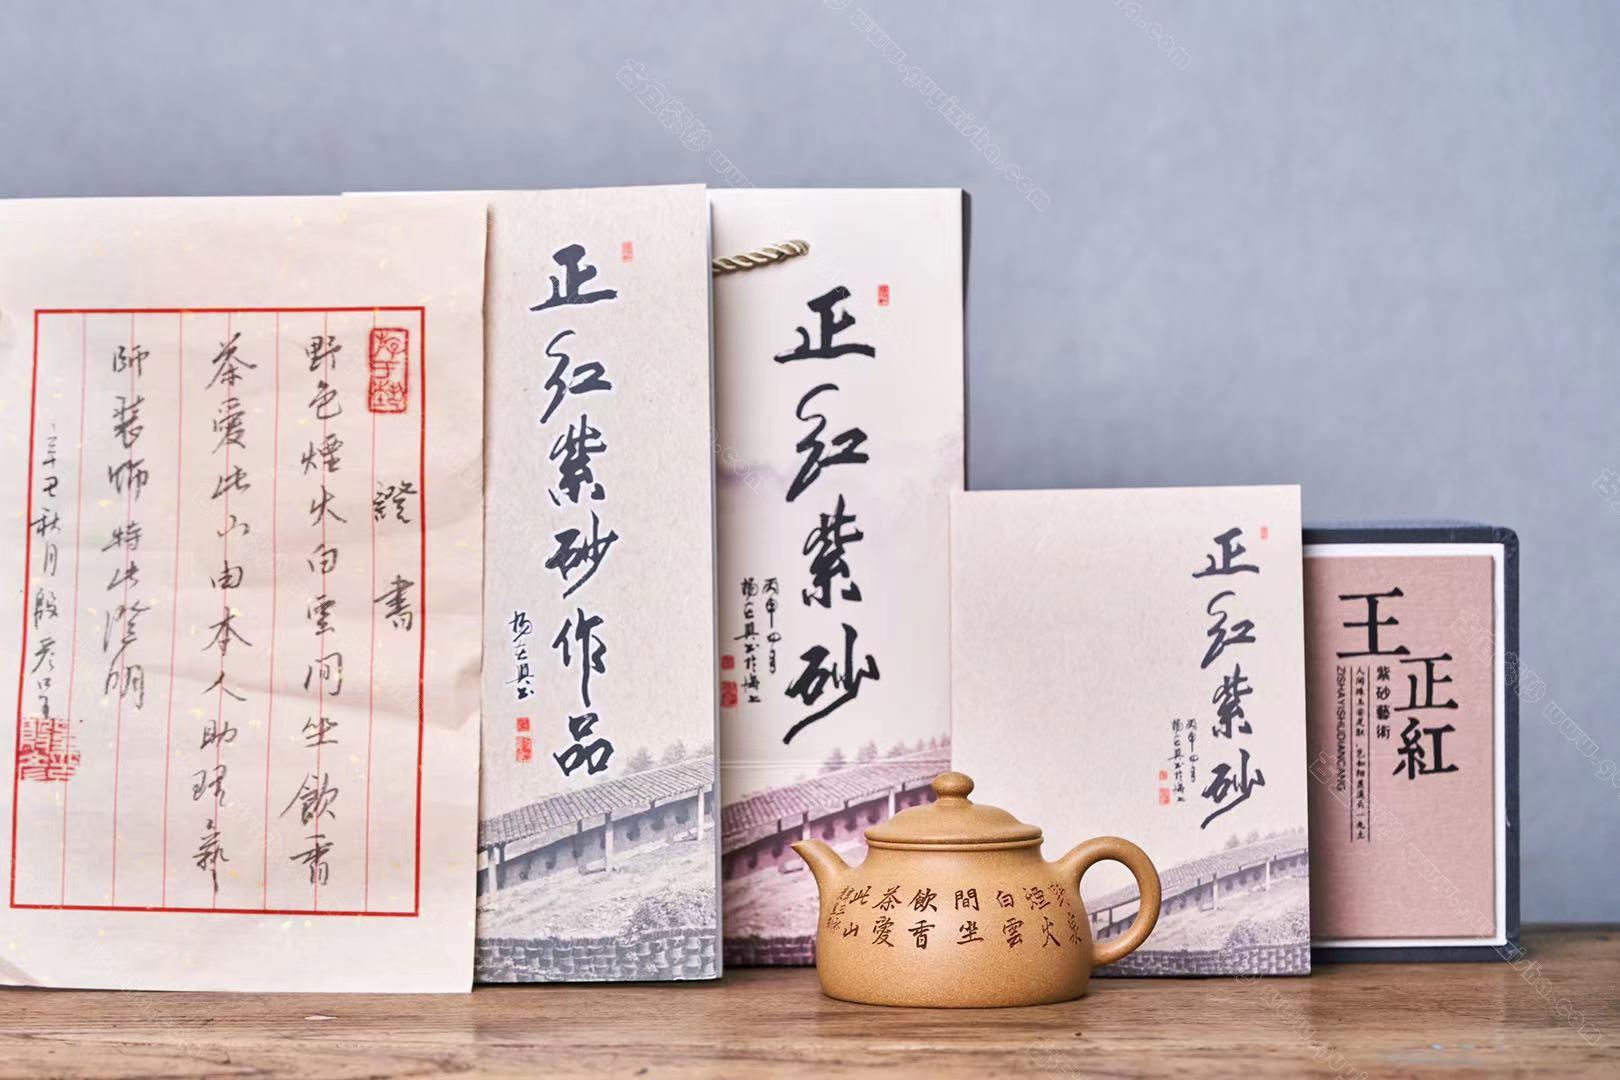 證書
野色煙火白雲间坐飲香
茶愛此山由本人助理工藝
師裝飾特此證明
辛丑秋月
正红紫砂作品
正红紫砂
丙申四月
正红紫砂
丙申四月
王正紅
紫砂藝術
ZISHAYISHUDIANCANG
煙火
白雲
間坐
飲香
茶愛
此山
古宜紫砂 www.guyizisha.com